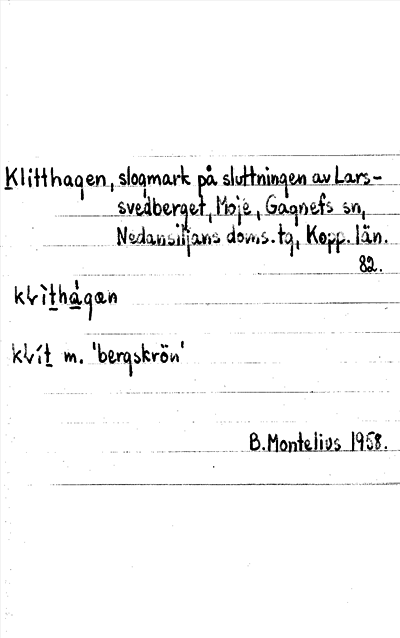 Klitthagen, slogmark på sluttningen av Lars-
svedberget, Moje, Gagnefs sn,
Nedansiljans doms.tg, Kopp. län.
82.
klìthågan
klít m. 'bergskrön'
B. Montelius 1958.